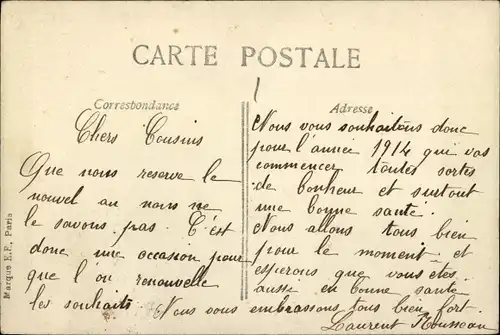 CARTE POSTALE
Correspondance
Chers Cousins
Que nous reserve le
nouvel an nous ne
le savons pas. C'est
donc une occasion pour
que l'on renouvelle
les souhaits.
Adresse
Nous vous souhaitons donc
pour l'année 1914 qui vas
commencer toutes sortes
de bonheur et surtout
une bonne santé.
Nous allons tous bien
pour le moment et
esperons que vous etes
aussi en bonne santé
Nous vous embrassons tous bien fort.
Laurent
Marque E.F. Paris